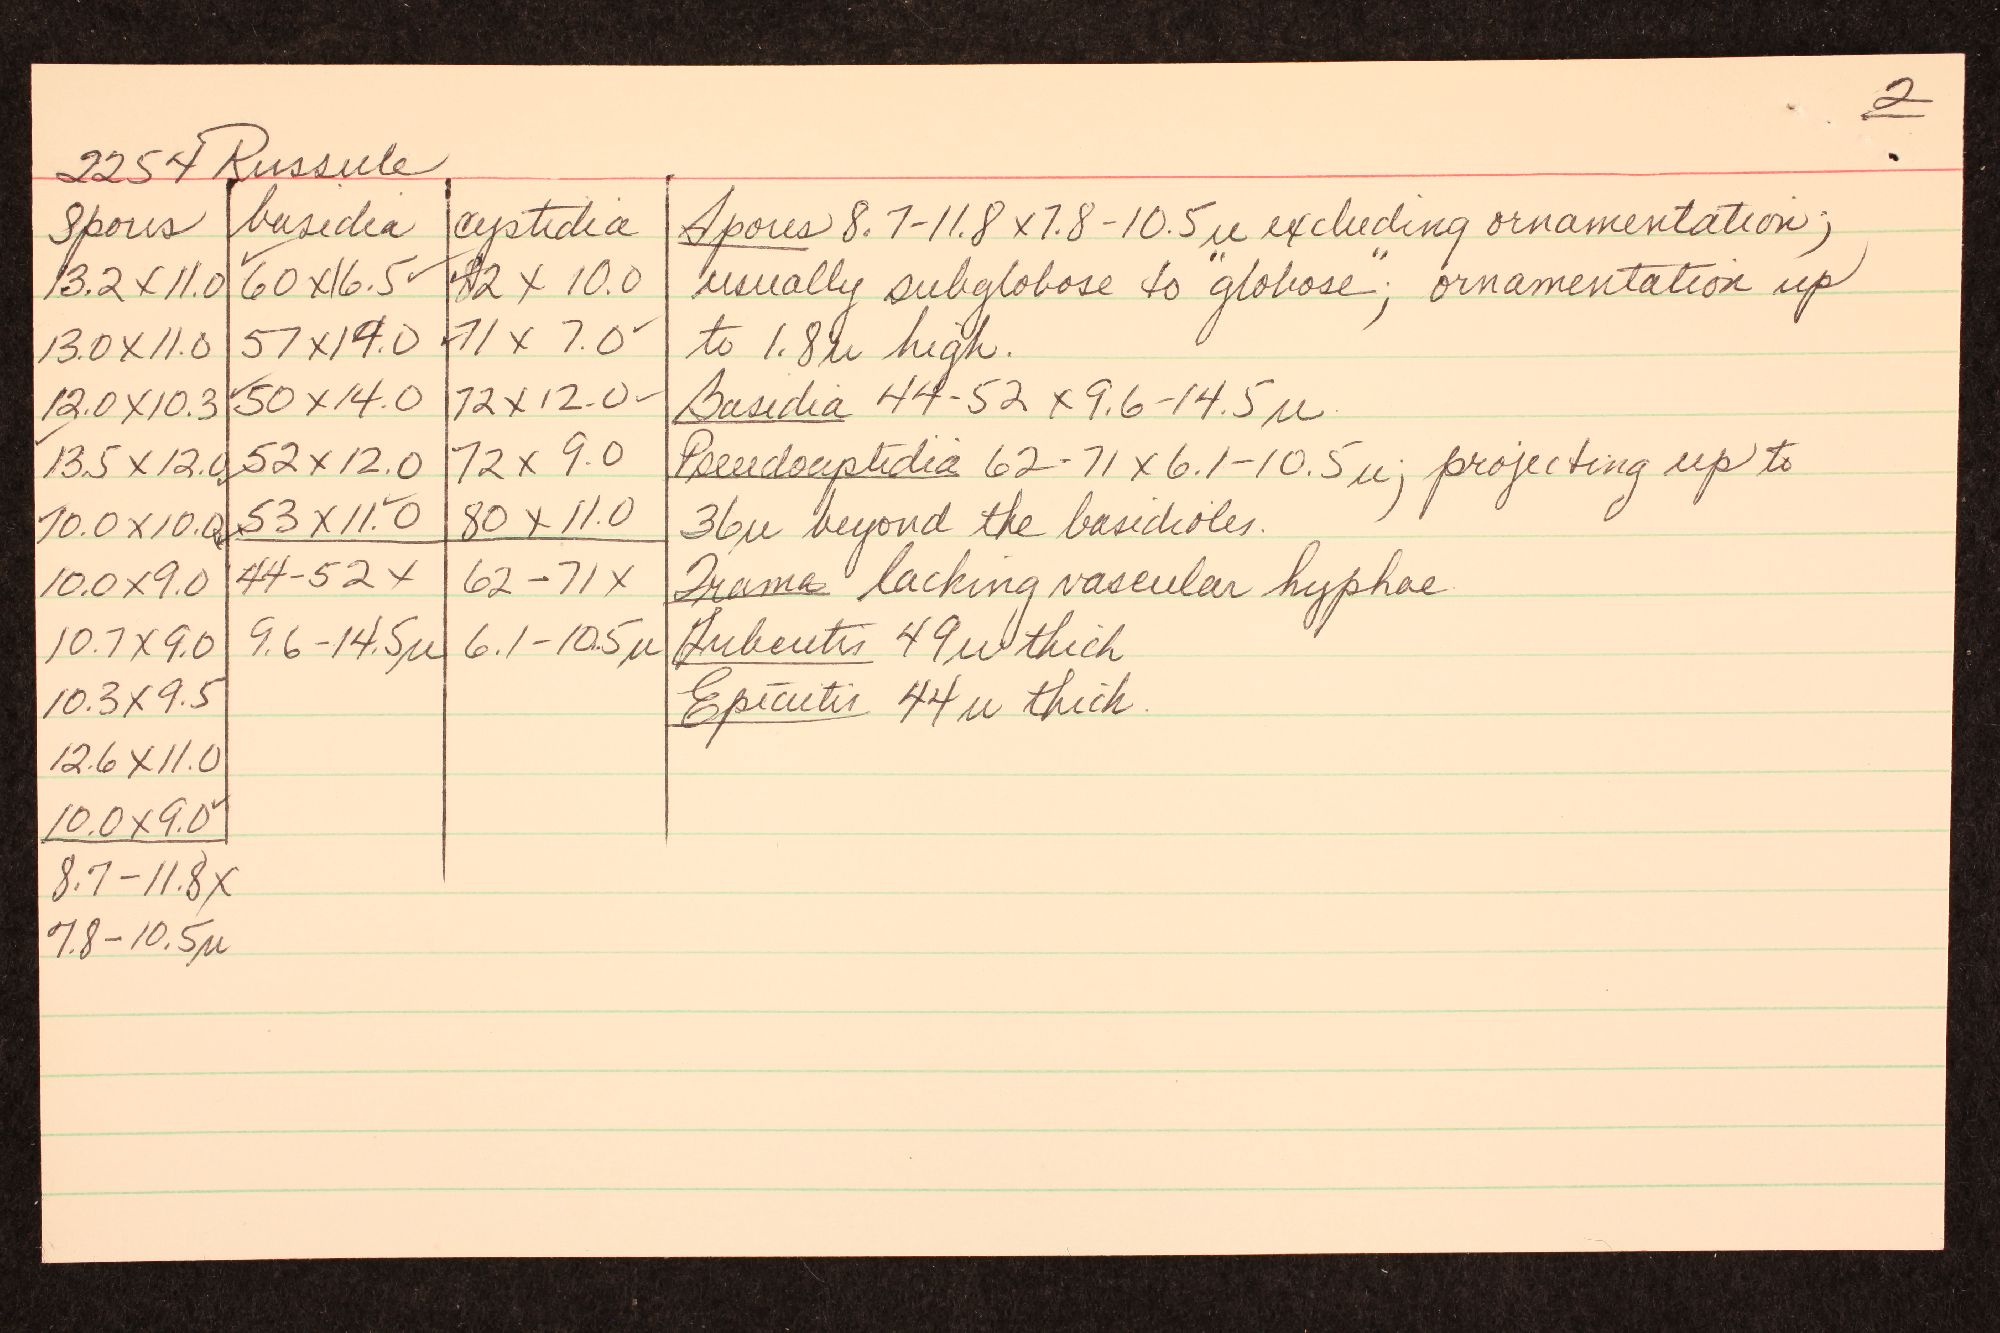 2
2254 Russula
Spores | basidia | cystidia | Spores 8.7-11.8 x 7.8-10.5µ excluding ornamentation;
13.2 x 11.0 | 60 x 16.5 | 82 x 10.0 | usually subglobose to "globose"; ornamentation up
13.0 x 11.0 | 57 x 14.0 | 71 x 7.0 | to 1.8µ high.
12.0 x 10.3 | 50 x 14.0 | 72 x 12.0 | Basidia 44-52 x 9.6-14.5µ.
13.5 x 12.0 | 52 x 12.0 | 72 x 9.0 | Pseudocystidia 62-71 x 6.1-10.5µ; projecting up to
10.0 x 10.0 | 53 x 11.0 | 80 x 11.0 | 36µ beyond the basidioles.
10.0 x 9.0 | 44-52 x | 62-71 x | Trama lacking vascular hyphae
10.7 x 9.0 | 9.6-14.5µ | 6.1-10.5µ | Subcutis 49µ thick
10.3 x 9.5 | Epicutis 44µ thick.
12.6 x 11.0
10.0 x 9.0
8.7-11.8 x
7.8-10.5µ